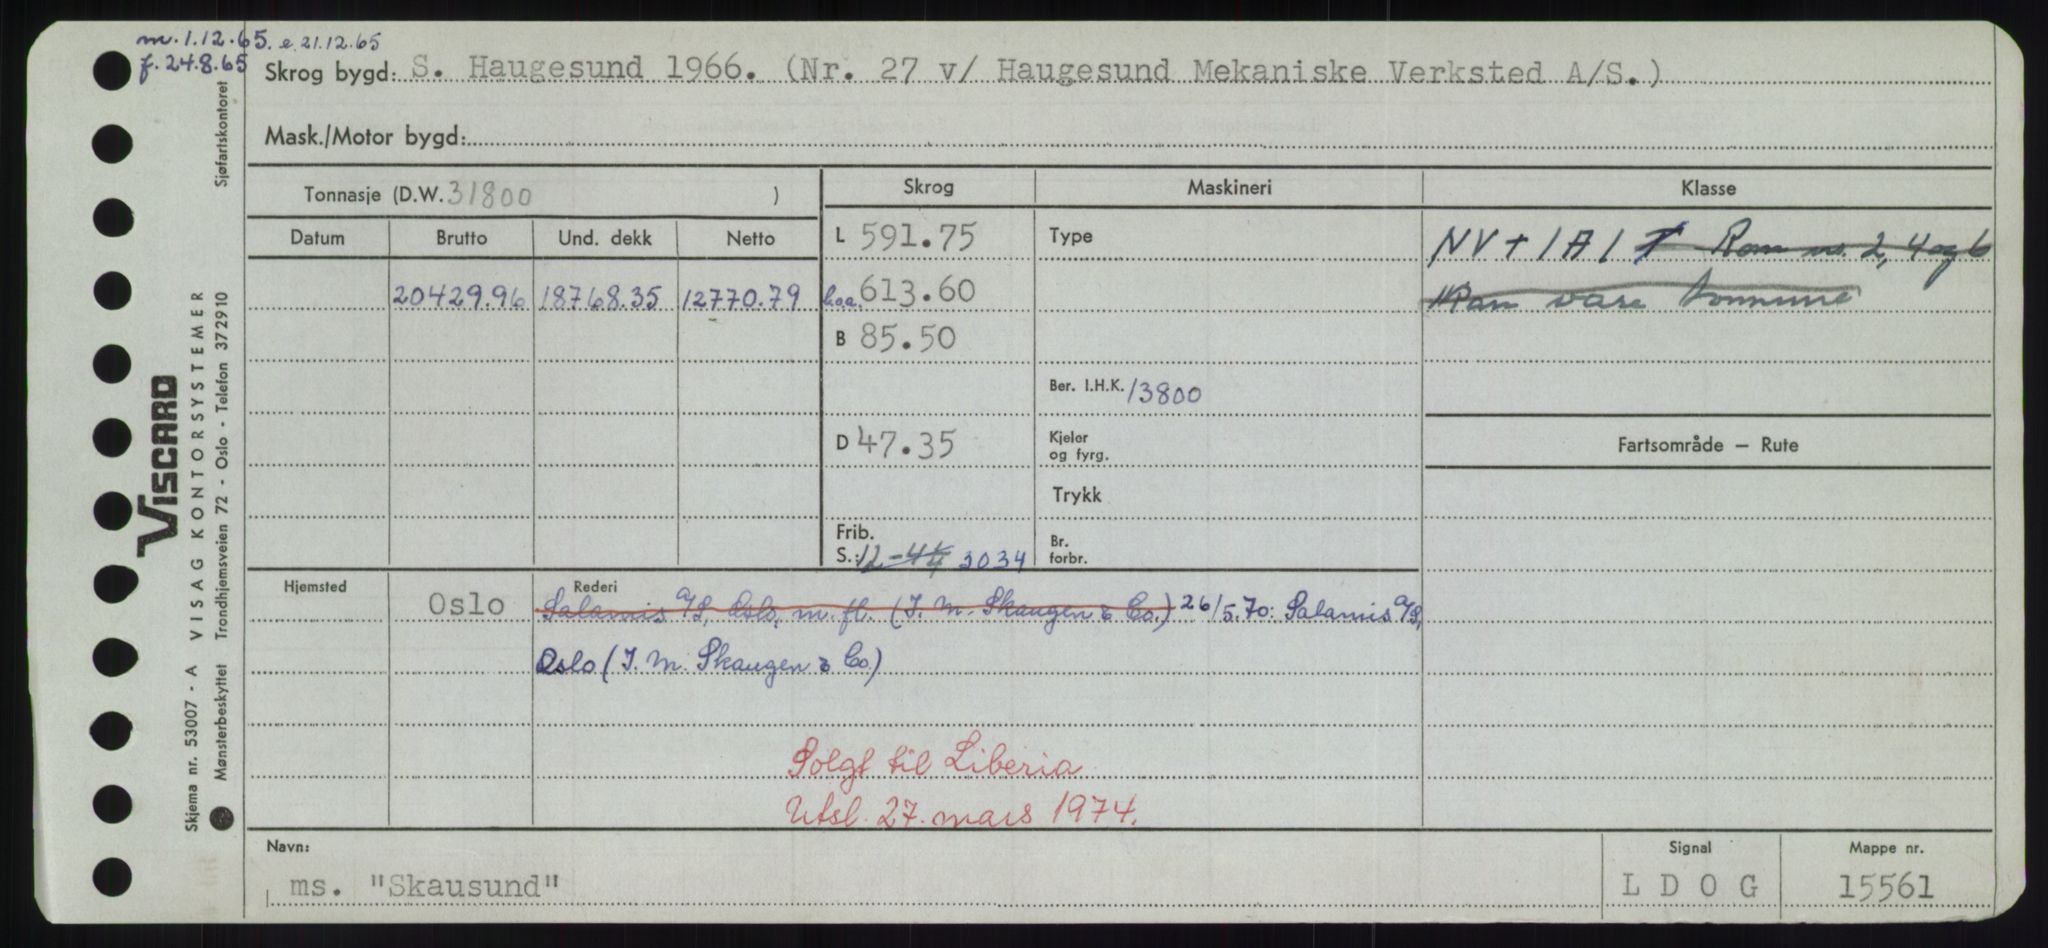 m. 1.12.65. e. 21.12.65
f. 24.8.65
Skrog bygd: S. Haugesund 1966. (Nr. 27 v/ Haugesund Mekaniske Verksted A/S.)
Mask./Motor bygd:
Tonnasje (D.W. 31800 )
Skrog Maskineri Klasse
Datum Brutto Und. dekk Netto
L 591.75 Type NV + 1A1 Rom no. 2, 4 og 6
20429.96 18768.35 12770.79 l.o.a. 613.60 kan være tomme
B 85.50
Ber. I.H.K. 13800
D 47.35 Kjeler og fyrg.
Fartsområde — Rute
Trykk
Frib. S.: 12-4 3034 Br. forbr.
Hjemsted Rederi
Oslo Salamis A/S, Oslo, m. fl. (I. M. Skaugen & Co.) 26/5.70: Salamis A/S,
Oslo (I. M. Skaugen & Co.)
Solgt til Liberia
Utsl. 27. mars 1974.
Navn: Signal Mappe nr.
ms. "Skausund" L D O G 15561
VISCARD
Skjema nr. 53007 - A VISAG KONTORSYSTEMER
Mønsterbeskyttet Trondhjemsveien 72 - Oslo - Telefon 372910 Sjøfartskontoret